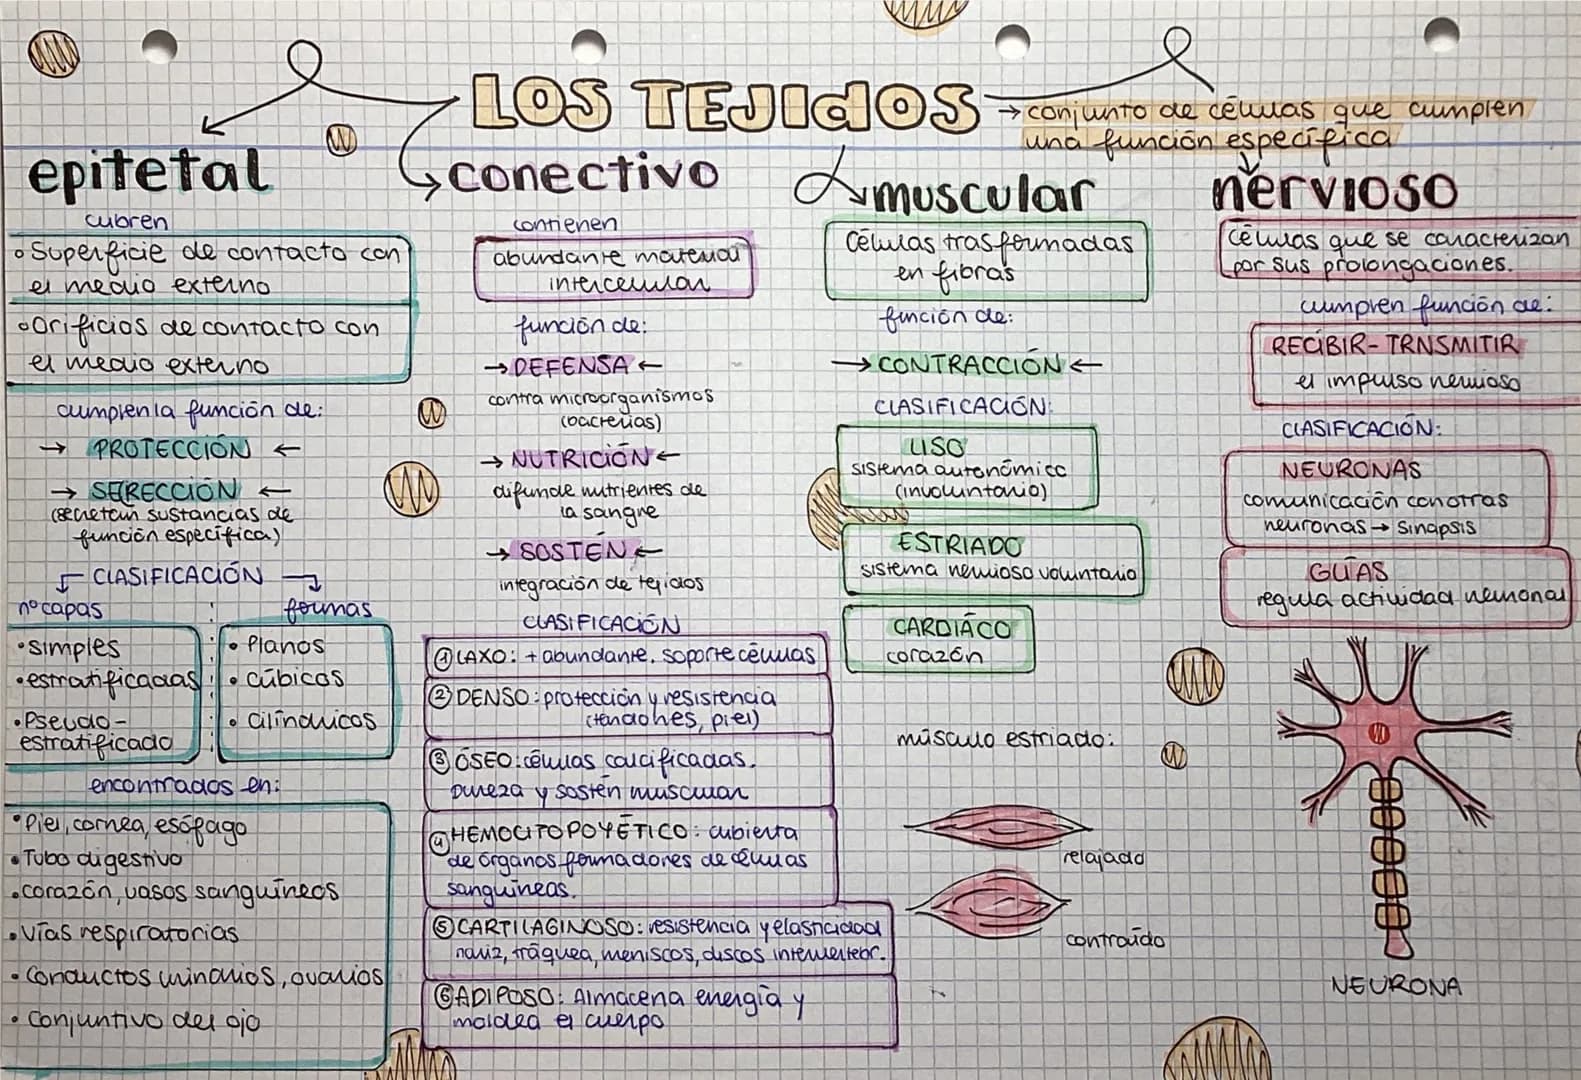 LOS TEJIdOS
→ conjunto de células que cumplen
una función específica
epitetal
cubren
Superficie de contacto con
el medio externo
Orificios de contacto con
el medio externo
cumplen la función de:
→ PROTECCIÓN ←
→ SECRECCIÓN ←
(secretan sustancias de
función específica)
CLASIFICACIÓN
nº capas
• simples
• estratificadas
• Pseudo-
estratificado
formas
• Planos
• cúbicos
• cilíndricos
encontrados en:
• Piel, cornea, esófago
• Tubo digestivo
• corazón, vasos sanguíneos
• vías respiratorias
• Conductos urinarios, ovarios
• Conjuntivo del ojo
conectivo
contienen
abundante material
intercelular
función de:
→ DEFENSA ←
contra microorganismos
(bacterias)
→ NUTRICIÓN ←
difunde nutrientes de
la sangre
→ SOSTÉN ←
integración de tejidos
CLASIFICACIÓN
① LAXO: + abundante. soporte células
② DENSO: protección y resistencia
(tendones, piel)
③ ÓSEO: células calcificadas.
Dureza y sostén muscular
④ HEMOCITOPOYÉTICO: cubierta
de órganos formadores de células
sanguíneas.
⑤ CARTILAGINOSO: resistencia y elasticidad
nariz, tráquea, meniscos, discos intervertebr.
⑥ ADIPOSO: Almacena energía y
moldea el cuerpo
muscular
Células trasformadas
en fibras
función de:
→ CONTRACCIÓN ←
CLASIFICACIÓN:
LISO
sistema autonómico
(involuntario)
ESTRIADO
sistema nervioso voluntario
CARDIÁCO
corazón
músculo estriado:
relajado
contraído
nervioso
Células que se caracterizan
por sus prolongaciones.
cumplen función de:
RECIBIR-TRNSMITIR
el impulso nervioso
CLASIFICACIÓN:
NEURONAS
comunicación con otras
neuronas → sinapsis
GLÍAS
regula actividad neuronal
NEURONA